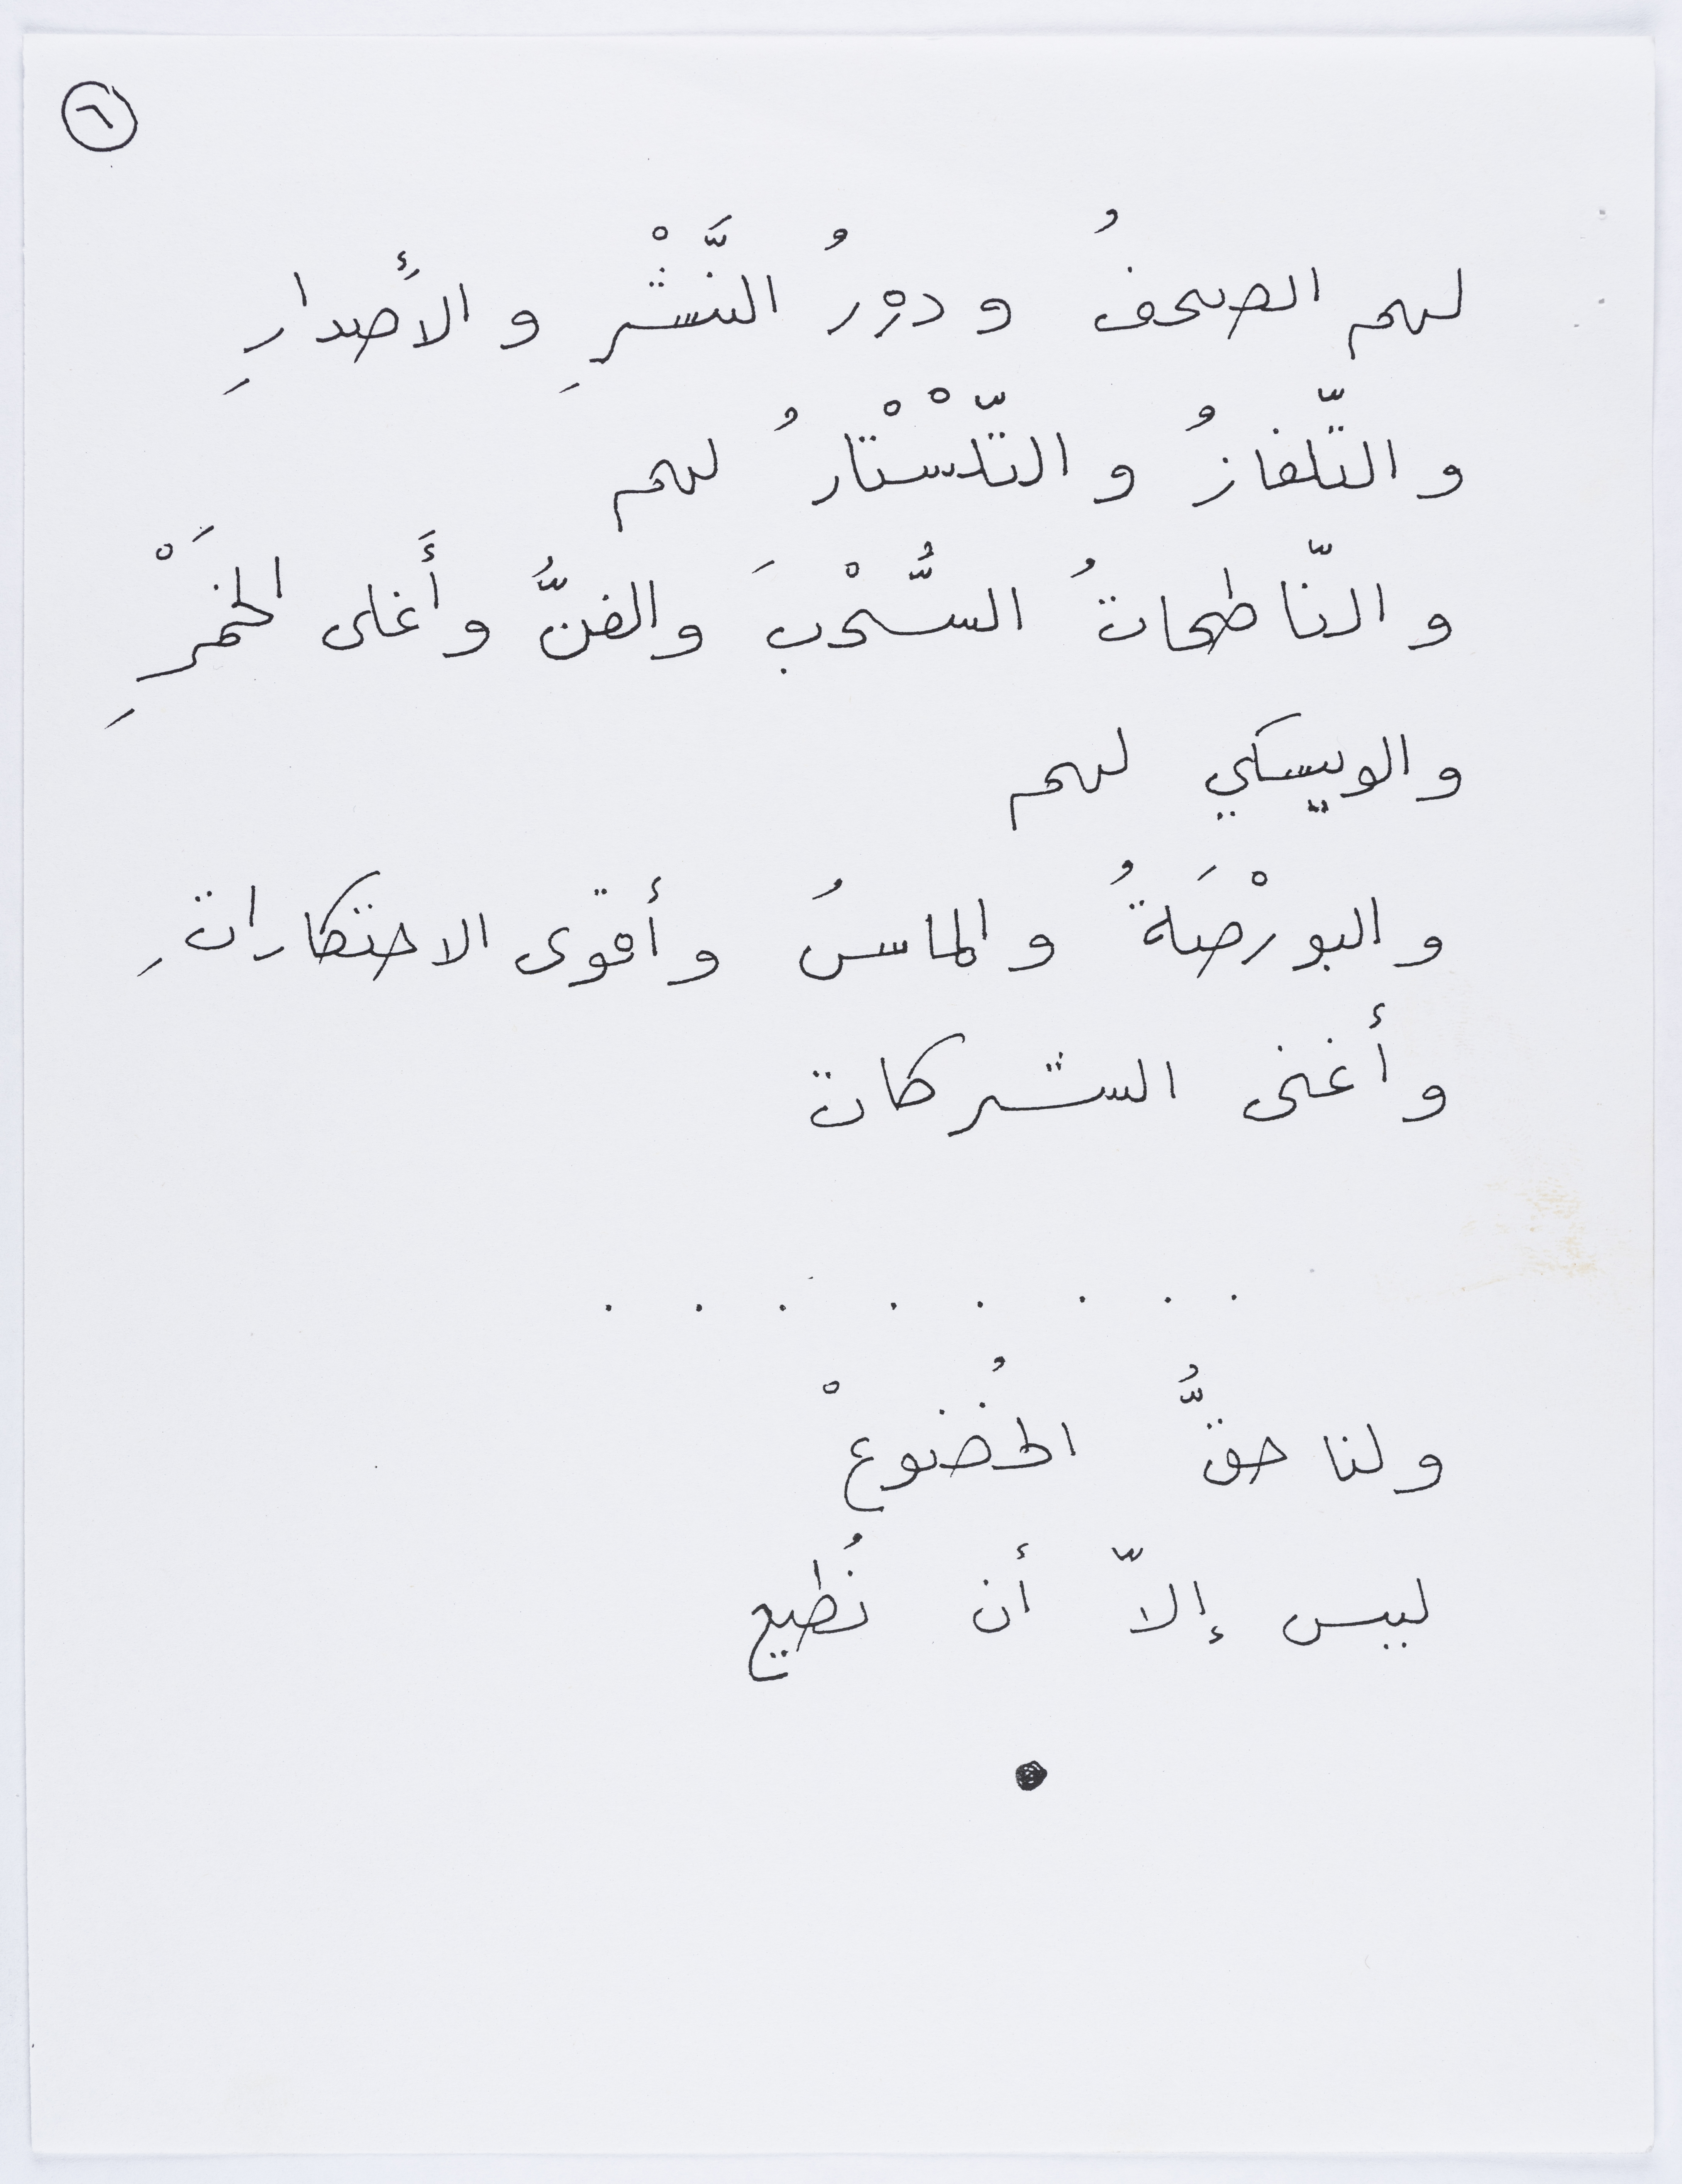 ٦
لهم الصحفُ ودورُ النَّشْرِ والأَصدارِ
والتّلفازُ والتّلْسْتارُ لهم
والنّاطحاتُ السُّحْبَ والفنُّ وأَغلى الخَمْرِ
والويسكي لهم
والبورْصَةُ والماسُ وأقوى الاحتكاراتِ
وأغنى الشركات
. . . . . . . .
ولنا حقُّ الخُضوعْ
ليس إلاّ أن نُطيع
●